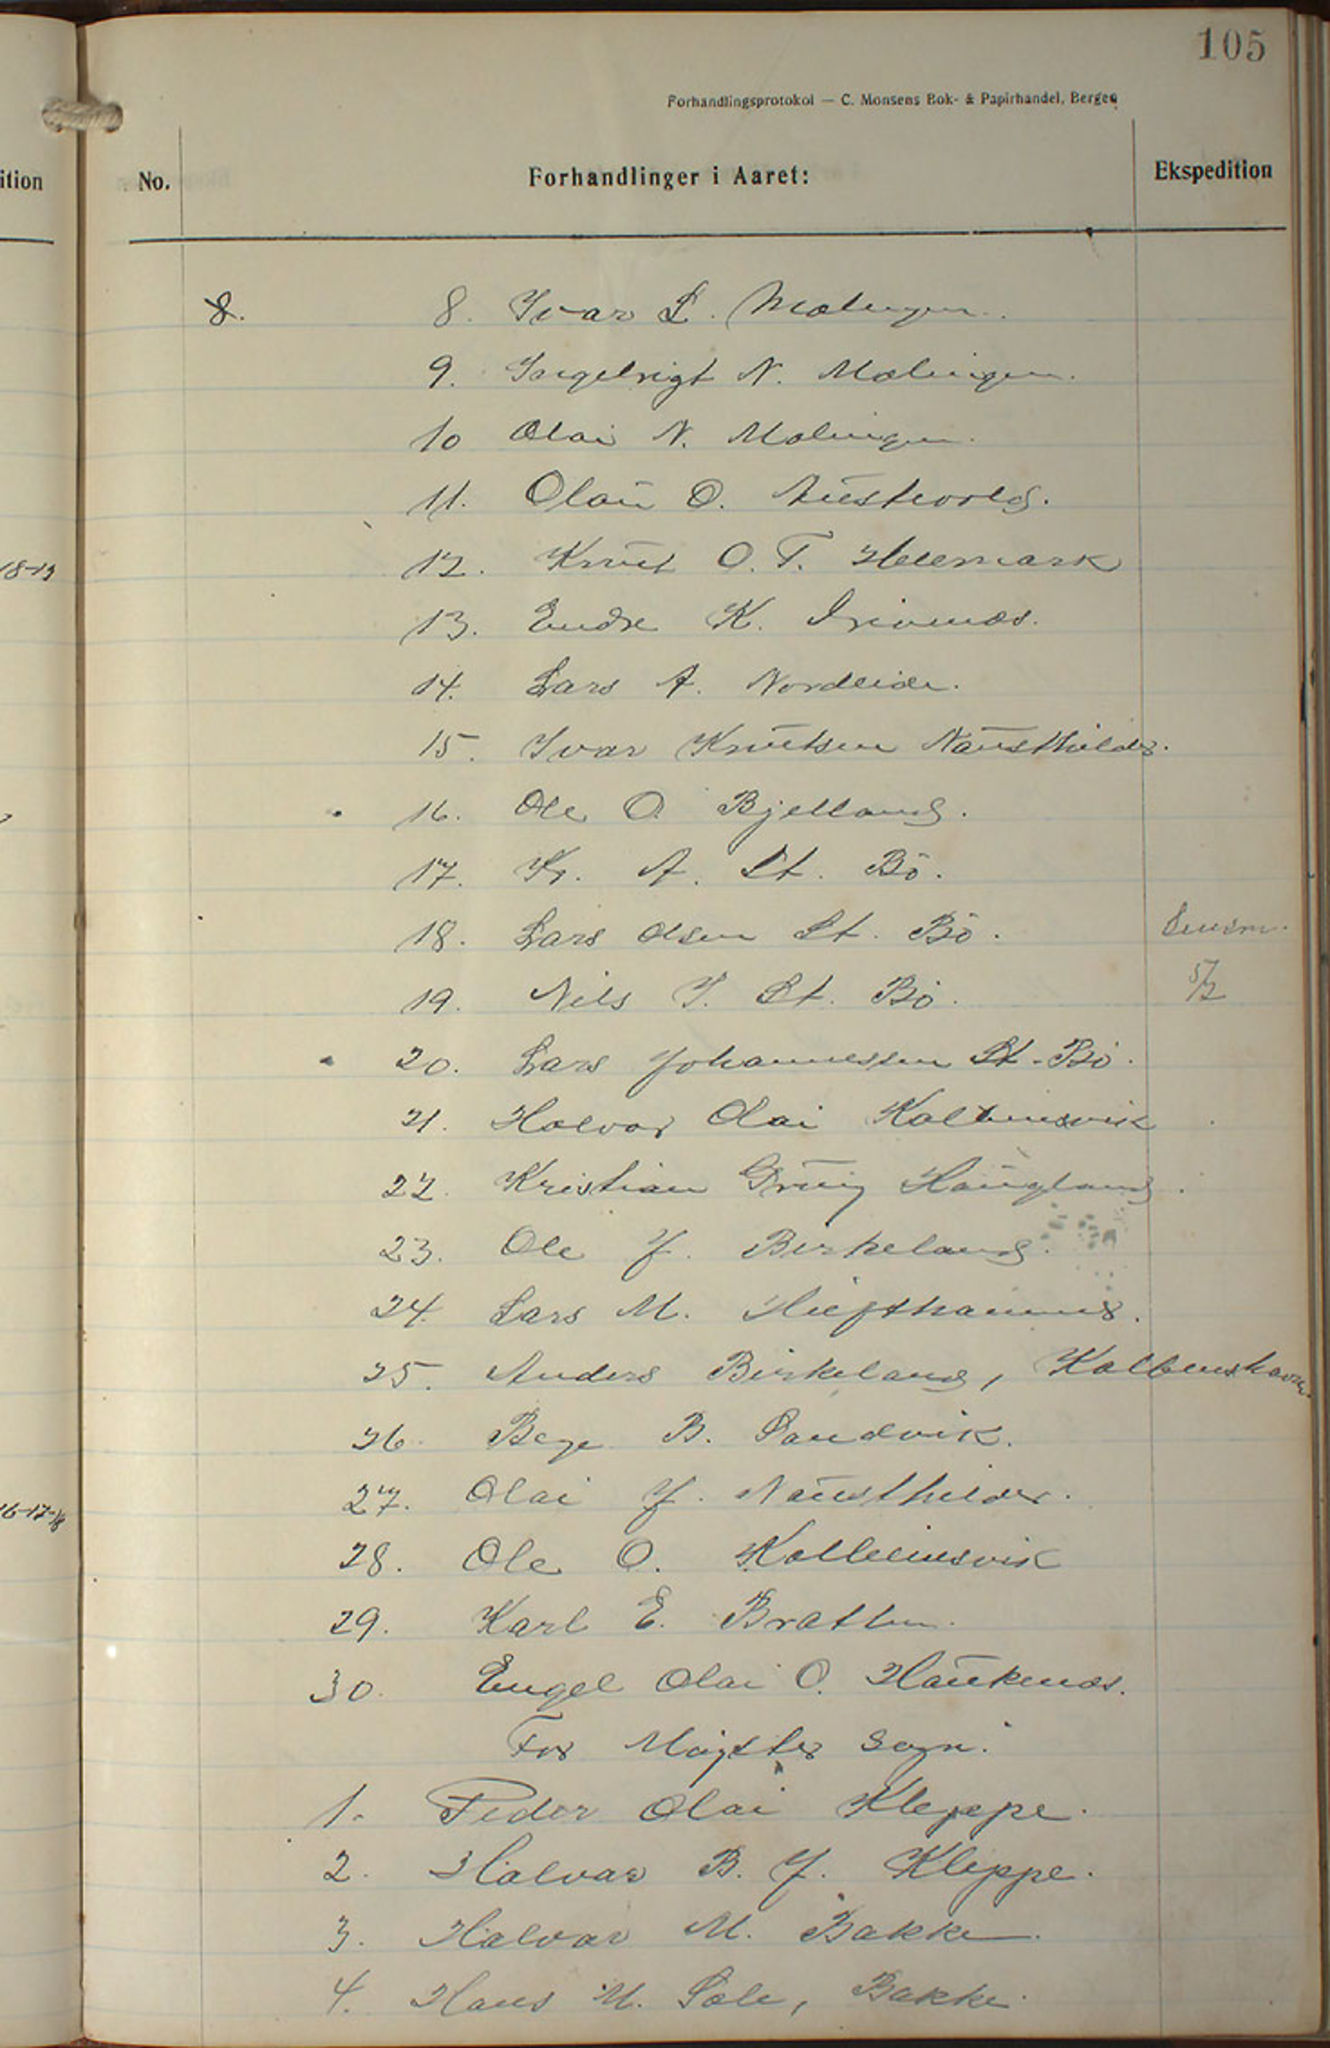 105
Forhandlingsprotokol — C. Monsens Bok- & Papirhandel, Bergen
ition
No.
Forhandlinger i Aaret:
Ekspedition
8. 8. Ivar L. Mælingen.
9. Ingebrigt N. Mælingen.
10 Olai N. Mælingen.
11. Olai O. Austevold.
18-19
12. Knut O. T. Hevmark
13. Endre K. Drivenæs.
14. Lars A. Nordeide.
15. Ivar Knutsen Naustheller.
16. Ole O. Bjelland.
17. Kr. A. St. Bö.
18. Lars Olsen St. Bö. Lensm.
19. Nils J. St. Bö. 5/2
20. Lars Johannessen St. Bö.
21. Halvor Olai Kolbeinsvik
22. Kristian Haugland.
23. Ole J. Birkeland.
24. Lars M.
25. Anders Birkeland, Kolbenshavn.
26. Bage B. Sandvik.
27. Olai J. Naustheller.
16-17-18
28. Ole O. Kolbeinsvik
29. Karl E. Bratten.
30. Engel Olai O. Haukenæs.
For Møgster Sogn.
1. Peder Olai Kleppe.
2. Halvar B. J. Kleppe.
3. Halvar M. Bakke.
4. Hans M. Sæle, Bakke.